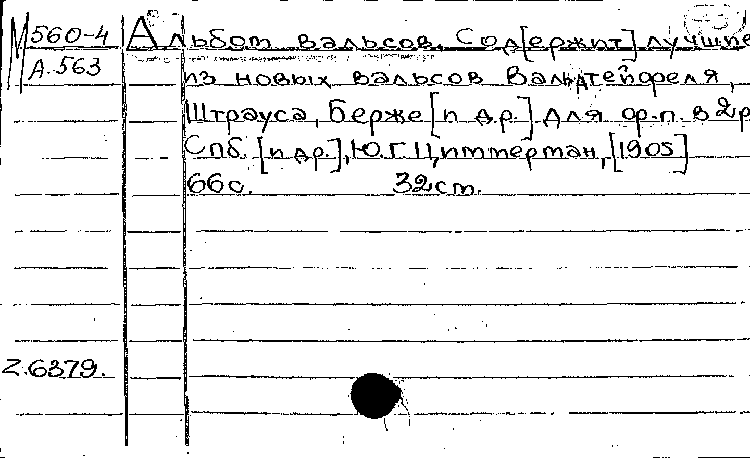 М 560-4 Альбом вальсов. Сод[ержит] лучшие
А.563 из новых вальсов Вальдтейфеля,
Штрауса, Берже [и др.] для ф.п. в 2 р
Спб. [и др.], Ю.Г. Циммерман, [1905]
66с. 32 ст.
Z.6379.